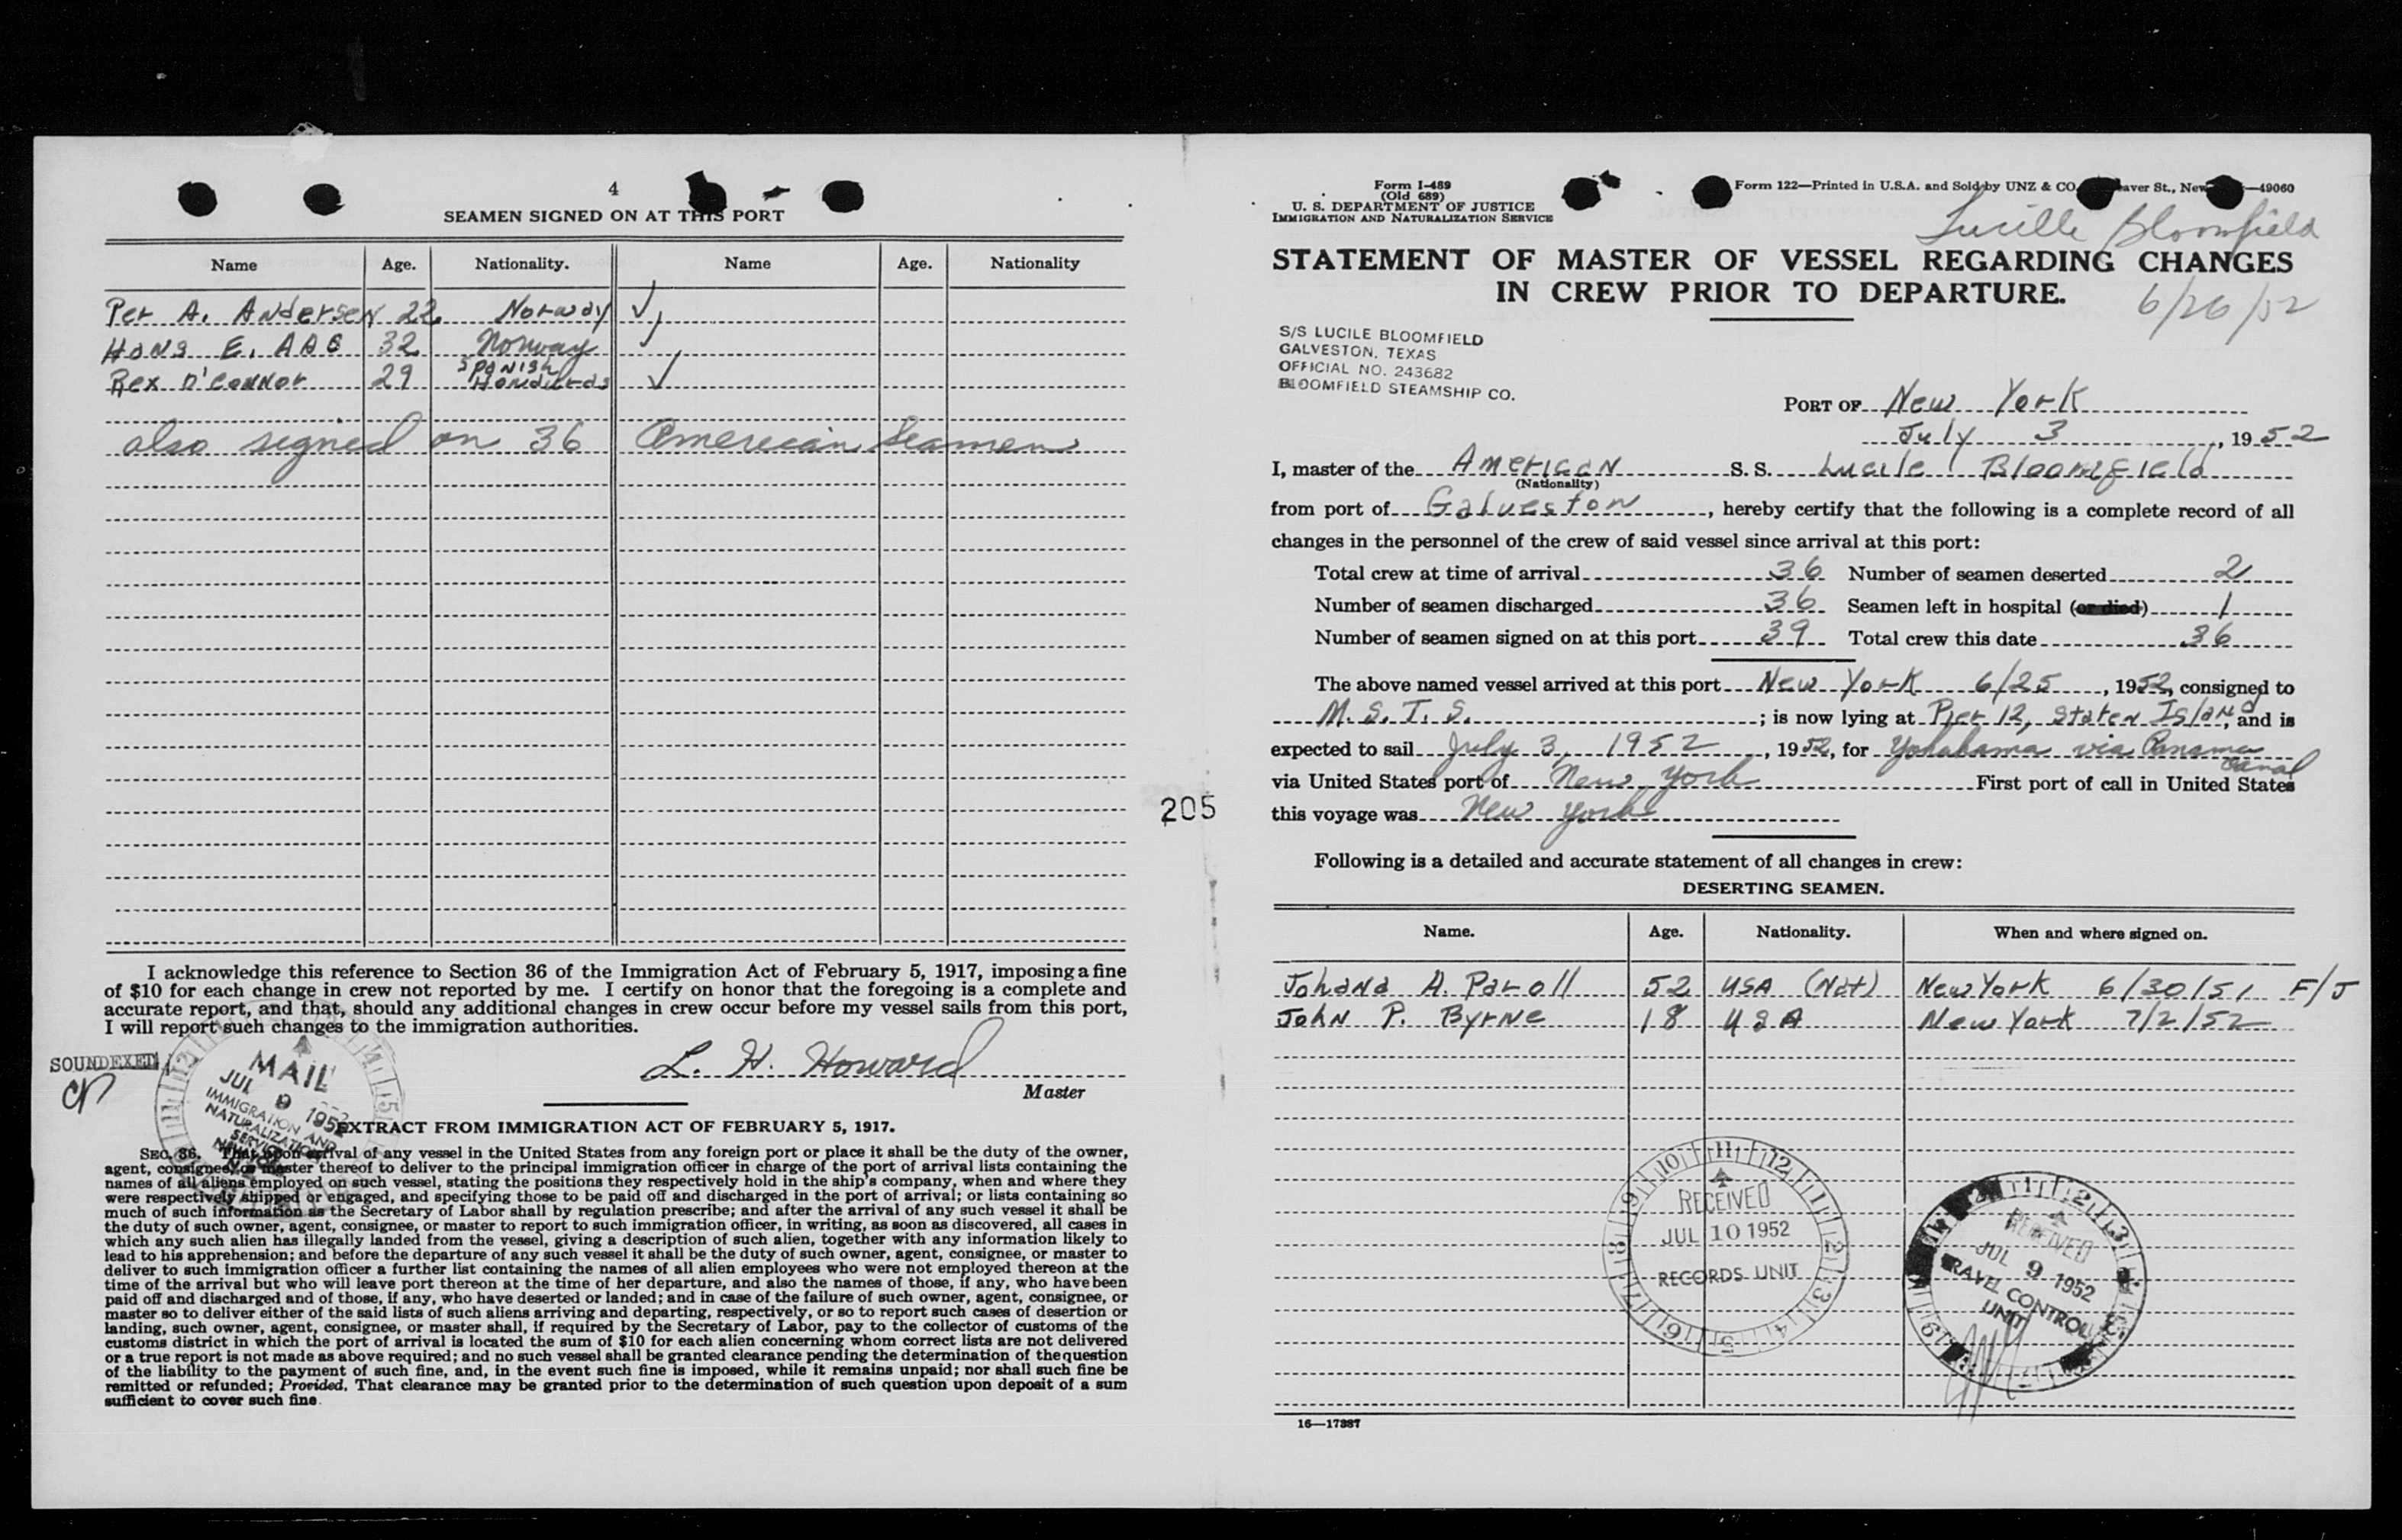 4
SEAMEN SIGNED ON AT THIS PORT
Name Age. Nationality. Name Age. Nationality
Per A. Andersen 22 Norway ✓
Hans E. AAS 32 Norway ✓
Rex O'Connor 29 Spanish Hondurds ✓
also signed on 36 American Seamen
I acknowledge this reference to Section 36 of the Immigration Act of February 5, 1917, imposing a fine
of $10 for each change in crew not reported by me. I certify on honor that the foregoing is a complete and
accurate report, and that, should any additional changes in crew occur before my vessel sails from this port,
I will report such changes to the immigration authorities.
SOUNDEXED
L. H. Howard
Master
MAIL
JUL 9 1952
IMMIGRATION AND
NATURALIZATION
SERVICE
EXTRACT FROM IMMIGRATION ACT OF FEBRUARY 5, 1917.
SEC. 36. That upon arrival of any vessel in the United States from any foreign port or place it shall be the duty of the owner,
agent, consignee, or master thereof to deliver to the principal immigration officer in charge of the port of arrival lists containing the
names of all aliens employed on such vessel, stating the positions they respectively hold in the ship's company, when and where they
were respectively shipped or engaged, and specifying those to be paid off and discharged in the port of arrival; or lists containing so
much of such information as the Secretary of Labor shall by regulation prescribe; and after the arrival of any such vessel it shall be
the duty of such owner, agent, consignee, or master to report to such immigration officer, in writing, as soon as discovered, all cases in
which any such alien has illegally landed from the vessel, giving a description of such alien, together with any information likely to
lead to his apprehension; and before the departure of any such vessel it shall be the duty of such owner, agent, consignee, or master to
deliver to such immigration officer a further list containing the names of all alien employees who were not employed thereon at the
time of the arrival but who will leave port thereon at the time of her departure, and also the names of those, if any, who have been
paid off and discharged and of those, if any, who have deserted or landed; and in case of the failure of such owner, agent, consignee, or
master so to deliver either of the said lists of such aliens arriving and departing, respectively, or so to report such cases of desertion or
landing, such owner, agent, consignee, or master shall, if required by the Secretary of Labor, pay to the collector of customs of the
customs district in which the port of arrival is located the sum of $10 for each alien concerning whom correct lists are not delivered
or a true report is not made as above required; and no such vessel shall be granted clearance pending the determination of the question
of the liability to the payment of such fine, and, in the event such fine is imposed, while it remains unpaid; nor shall such fine be
remitted or refunded; Provided, That clearance may be granted prior to the determination of such question upon deposit of a sum
sufficient to cover such fine.
205
Form I-489
(Old 689)
U. S. DEPARTMENT OF JUSTICE
IMMIGRATION AND NATURALIZATION SERVICE
Form 122—Printed in U.S.A. and Sold by UNZ & CO. aver St., New —49060
Lucille Bloomfield
STATEMENT OF MASTER OF VESSEL REGARDING CHANGES
IN CREW PRIOR TO DEPARTURE.
6/26/52
S/S LUCILE BLOOMFIELD
GALVESTON, TEXAS
OFFICIAL NO. 243682
BLOOMFIELD STEAMSHIP CO.
PORT OF New York
July 3, 1952
I, master of the American S. S. Lucile Bloomfield
(Nationality)
from port of Galveston, hereby certify that the following is a complete record of all
changes in the personnel of the crew of said vessel since arrival at this port:
Total crew at time of arrival 36 Number of seamen deserted 2
Number of seamen discharged 36 Seamen left in hospital (or died) 1
Number of seamen signed on at this port 39 Total crew this date 36
The above named vessel arrived at this port New York 6/25, 1952, consigned to
M. S. T. S.; is now lying at Pier 12, Staten Island, and is
expected to sail July 3, 1952, 1952, for Yokahama via Panama Canal
via United States port of New York First port of call in United States
this voyage was New York
Following is a detailed and accurate statement of all changes in crew:
DESERTING SEAMEN.
Name. Age. Nationality. When and where signed on.
Johana A. Paroll 52 USA (Nat) New York 6/30/51 F/J
John P. Byrne 18 USA New York 7/2/52
RECEIVED
JUL 10 1952
RECORDS UNIT
RECEIVED
JUL 9 1952
TRAVEL CONTROL
UNIT
16—17387